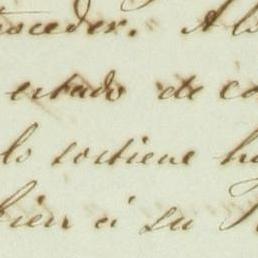 roceder. A lo
estado de co
lo sostiene ha
bien á su